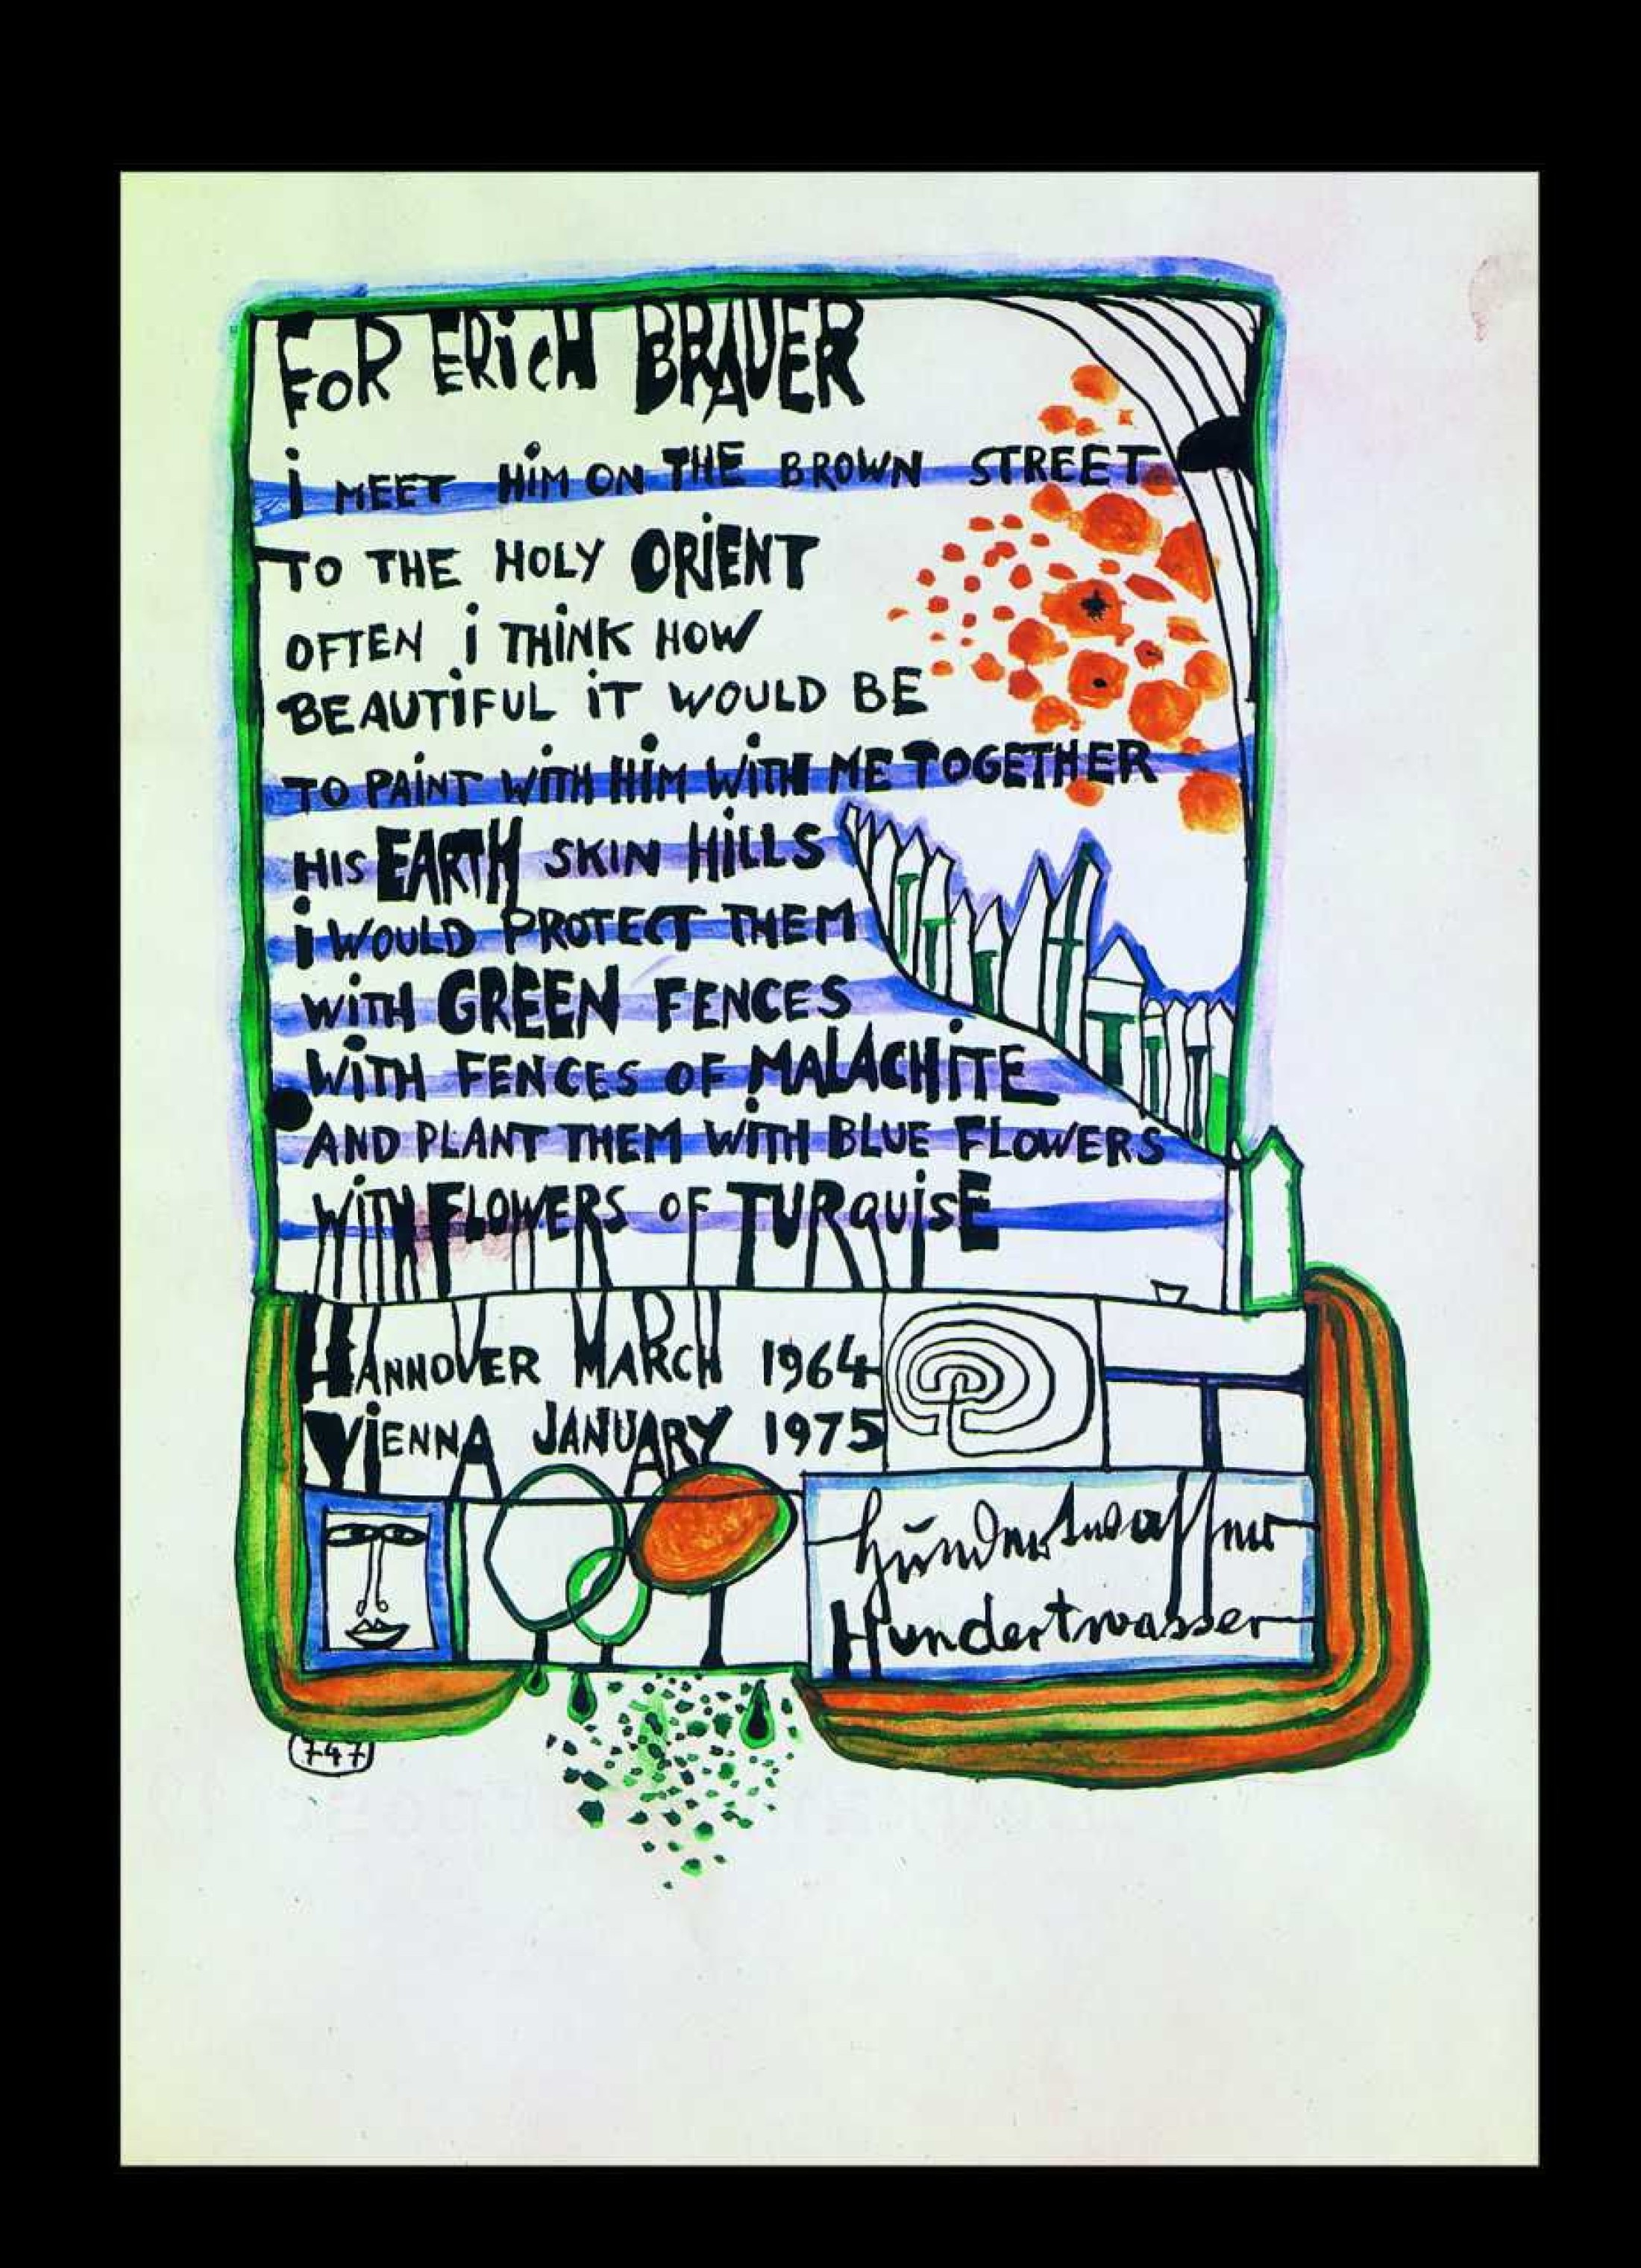 FOR ERiCH BRAUER
i MEET HiM ON THE BROWN STREET
TO THE HOLY ORiENT
OFTEN i THiNK HOW
BEAUTiFUL iT WOULD BE
TO PAiNT WiTH HiM WiTH ME TOGETHER
HIS EARTH SKIN HiLLS
i WOULD PROTECT THEM
WiTH GREEN FENCES
WiTH FENCES OF MALACHiTE
AND PLANT THEM WiTH BLUE FLOWERS
WiTH FLOWERS OF TURQUiSE
HANNOVER MARCH 1964
ViENNA JANUARY 1975
Hundertwasser
Hundertwasser
747